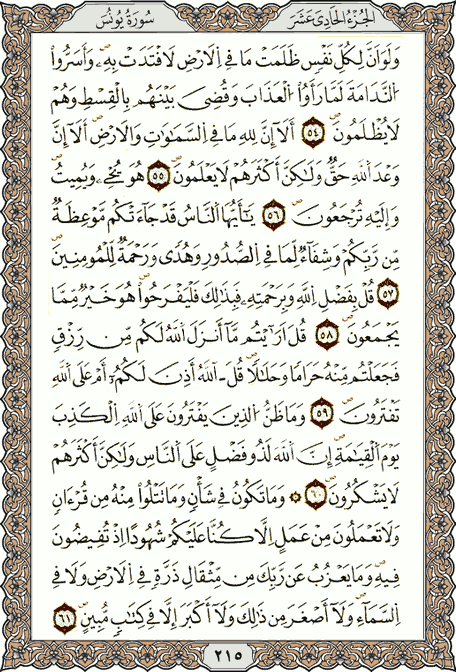 الجزء الحادي عشر
سورة يونس
وَلَوْ اَنَّ لِكُلِّ نَفْسٍ ظَلَمَتْ مَا فِي الْاَرْضِ لَافْتَدَتْ بِه۪ۜ وَاَسَرُّوا
النَّدَامَةَ لَمَّا رَاَوُا الْعَذَابَ وَقُضِيَ بَيْنَهُمْ بِالْقِسْطِ وَهُمْ
لَا يُظْلَمُونَ ﴿٥٤﴾ اَلَٓا اِنَّ لِلّٰهِ مَا فِي السَّمٰوَاتِ وَالْاَرْضِ اَلَٓا اِنَّ
وَعْدَ اللّٰهِ حَقٌّ وَلٰكِنَّ اَكْثَرَهُمْ لَا يَعْلَمُونَ ﴿٥٥﴾ هُوَ يُحْي۪ وَيُم۪يتُ
وَاِلَيْهِ تُرْجَعُونَ ﴿٥٦﴾ يَٓا اَيُّهَا النَّاسُ قَدْ جَٓاءَتْكُمْ مَوْعِظَةٌ
مِنْ رَبِّكُمْ وَشِفَٓاءٌ لِمَا فِي الصُّدُورِ وَهُدًى وَرَحْمَةٌ لِلْمُؤْمِن۪ينَ
﴿٥٧﴾ قُلْ بِفَضْلِ اللّٰهِ وَبِرَحْمَتِه۪ فَبِذٰلِكَ فَلْيَفْرَحُوا هُوَ خَيْرٌ مِمَّا
يَجْمَعُونَ ﴿٥٨﴾ قُلْ اَرَاَيْتُمْ مَٓا اَنْزَلَ اللّٰهُ لَكُمْ مِنْ رِزْقٍ
فَجَعَلْتُمْ مِنْهُ حَرَامًا وَحَلَالًا قُلْ آٰللّٰهُ اَذِنَ لَكُمْ اَمْ عَلَى اللّٰهِ
تَفْتَرُونَ ﴿٥٩﴾ وَمَا ظَنُّ الَّذ۪ينَ يَفْتَرُونَ عَلَى اللّٰهِ الْكَذِبَ
يَوْمَ الْقِيٰمَةِ اِنَّ اللّٰهَ لَذُو فَضْلٍ عَلَى النَّاسِ وَلٰكِنَّ اَكْثَرَهُمْ
لَا يَشْكُرُونَ ﴿٦٠﴾ وَمَا تَكُونُ ف۪ي شَأْنٍ وَمَا تَتْلُوا مِنْهُ مِنْ قُرْاٰنٍ
وَلَا تَعْمَلُونَ مِنْ عَمَلٍ اِلَّا كُنَّا عَلَيْكُمْ شُهُودًا اِذْ تُف۪يضُونَ
ف۪يهِ وَمَا يَعْزُبُ عَنْ رَبِّكَ مِنْ مِثْقَالِ ذَرَّةٍ فِي الْاَرْضِ وَلَا فِي
السَّمَٓاءِ وَلَٓا اَصْغَرَ مِنْ ذٰلِكَ وَلَٓا اَكْبَرَ اِلَّا ف۪ي كِتَابٍ مُب۪ينٍ ﴿٦١﴾
٢١٥